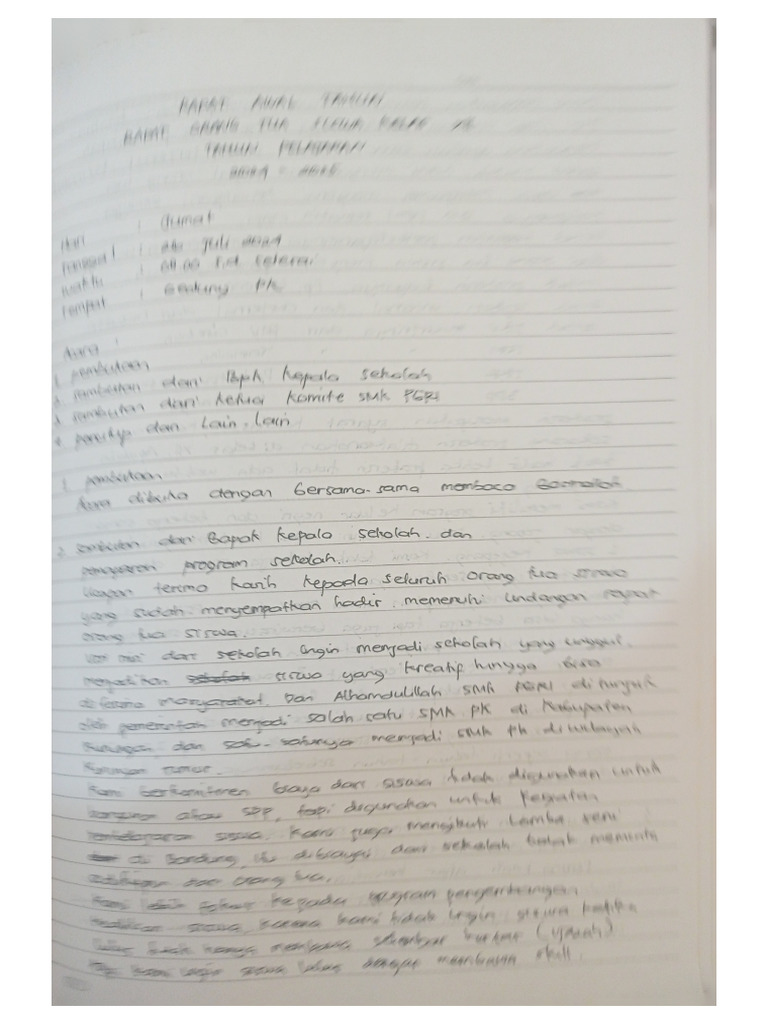 RAPAT AWAL TAHUN
RAPAT ORANG TUA SISWA KELAS
TAHUN PELAJARAN
Hari : Jumat
Tanggal : Juli
Waktu : s.d selesai
Tempat : Gedung PK
Acara :
1. pembukaan
2. sambutan dari Bpk Kepala sekolah
3. sambutan dari ketua komite SMK PGRI
4. penutup dan Lain-Lain
1. pembukaan
Acara dibuka dengan bersama-sama membaca Basmalah
2. sambutan dari Bapak Kepala sekolah dan
pemaparan program sekolah.
Ucapan terima kasih kepada seluruh orang tua siswa
yang sudah menyempatkan hadir memenuhi undangan rapat
orang tua siswa.
Visi misi dari sekolah ingin menjadi sekolah yang unggul.
menjadikan siswa yang kreatif hingga bisa
diterima masyarakat. Dan Alhamdulillah SMK PGRI ditunjuk
oleh pemerintah menjadi salah satu SMK PK di Kabupaten
Kuningan dan satu-satunya menjadi SMK PK di wilayah
Kuningan timur.
Kami berkomitmen biaya dari siswa tidak digunakan untuk
bangunan atau SPP, tapi digunakan untuk kegiatan
pembelajaran siswa. Kami juga mengikuti Lomba seni
di Bandung, itu dibiayai dari sekolah tidak meminta
dari orang tua.
Kami lebih fokus kepada program pengembangan
siswa, karena kami tidak ingin siswa ketika
lulus tidak hanya membawa selembar kertas (ijazah)
kami ingin siswa lulus dengan membawa skill.